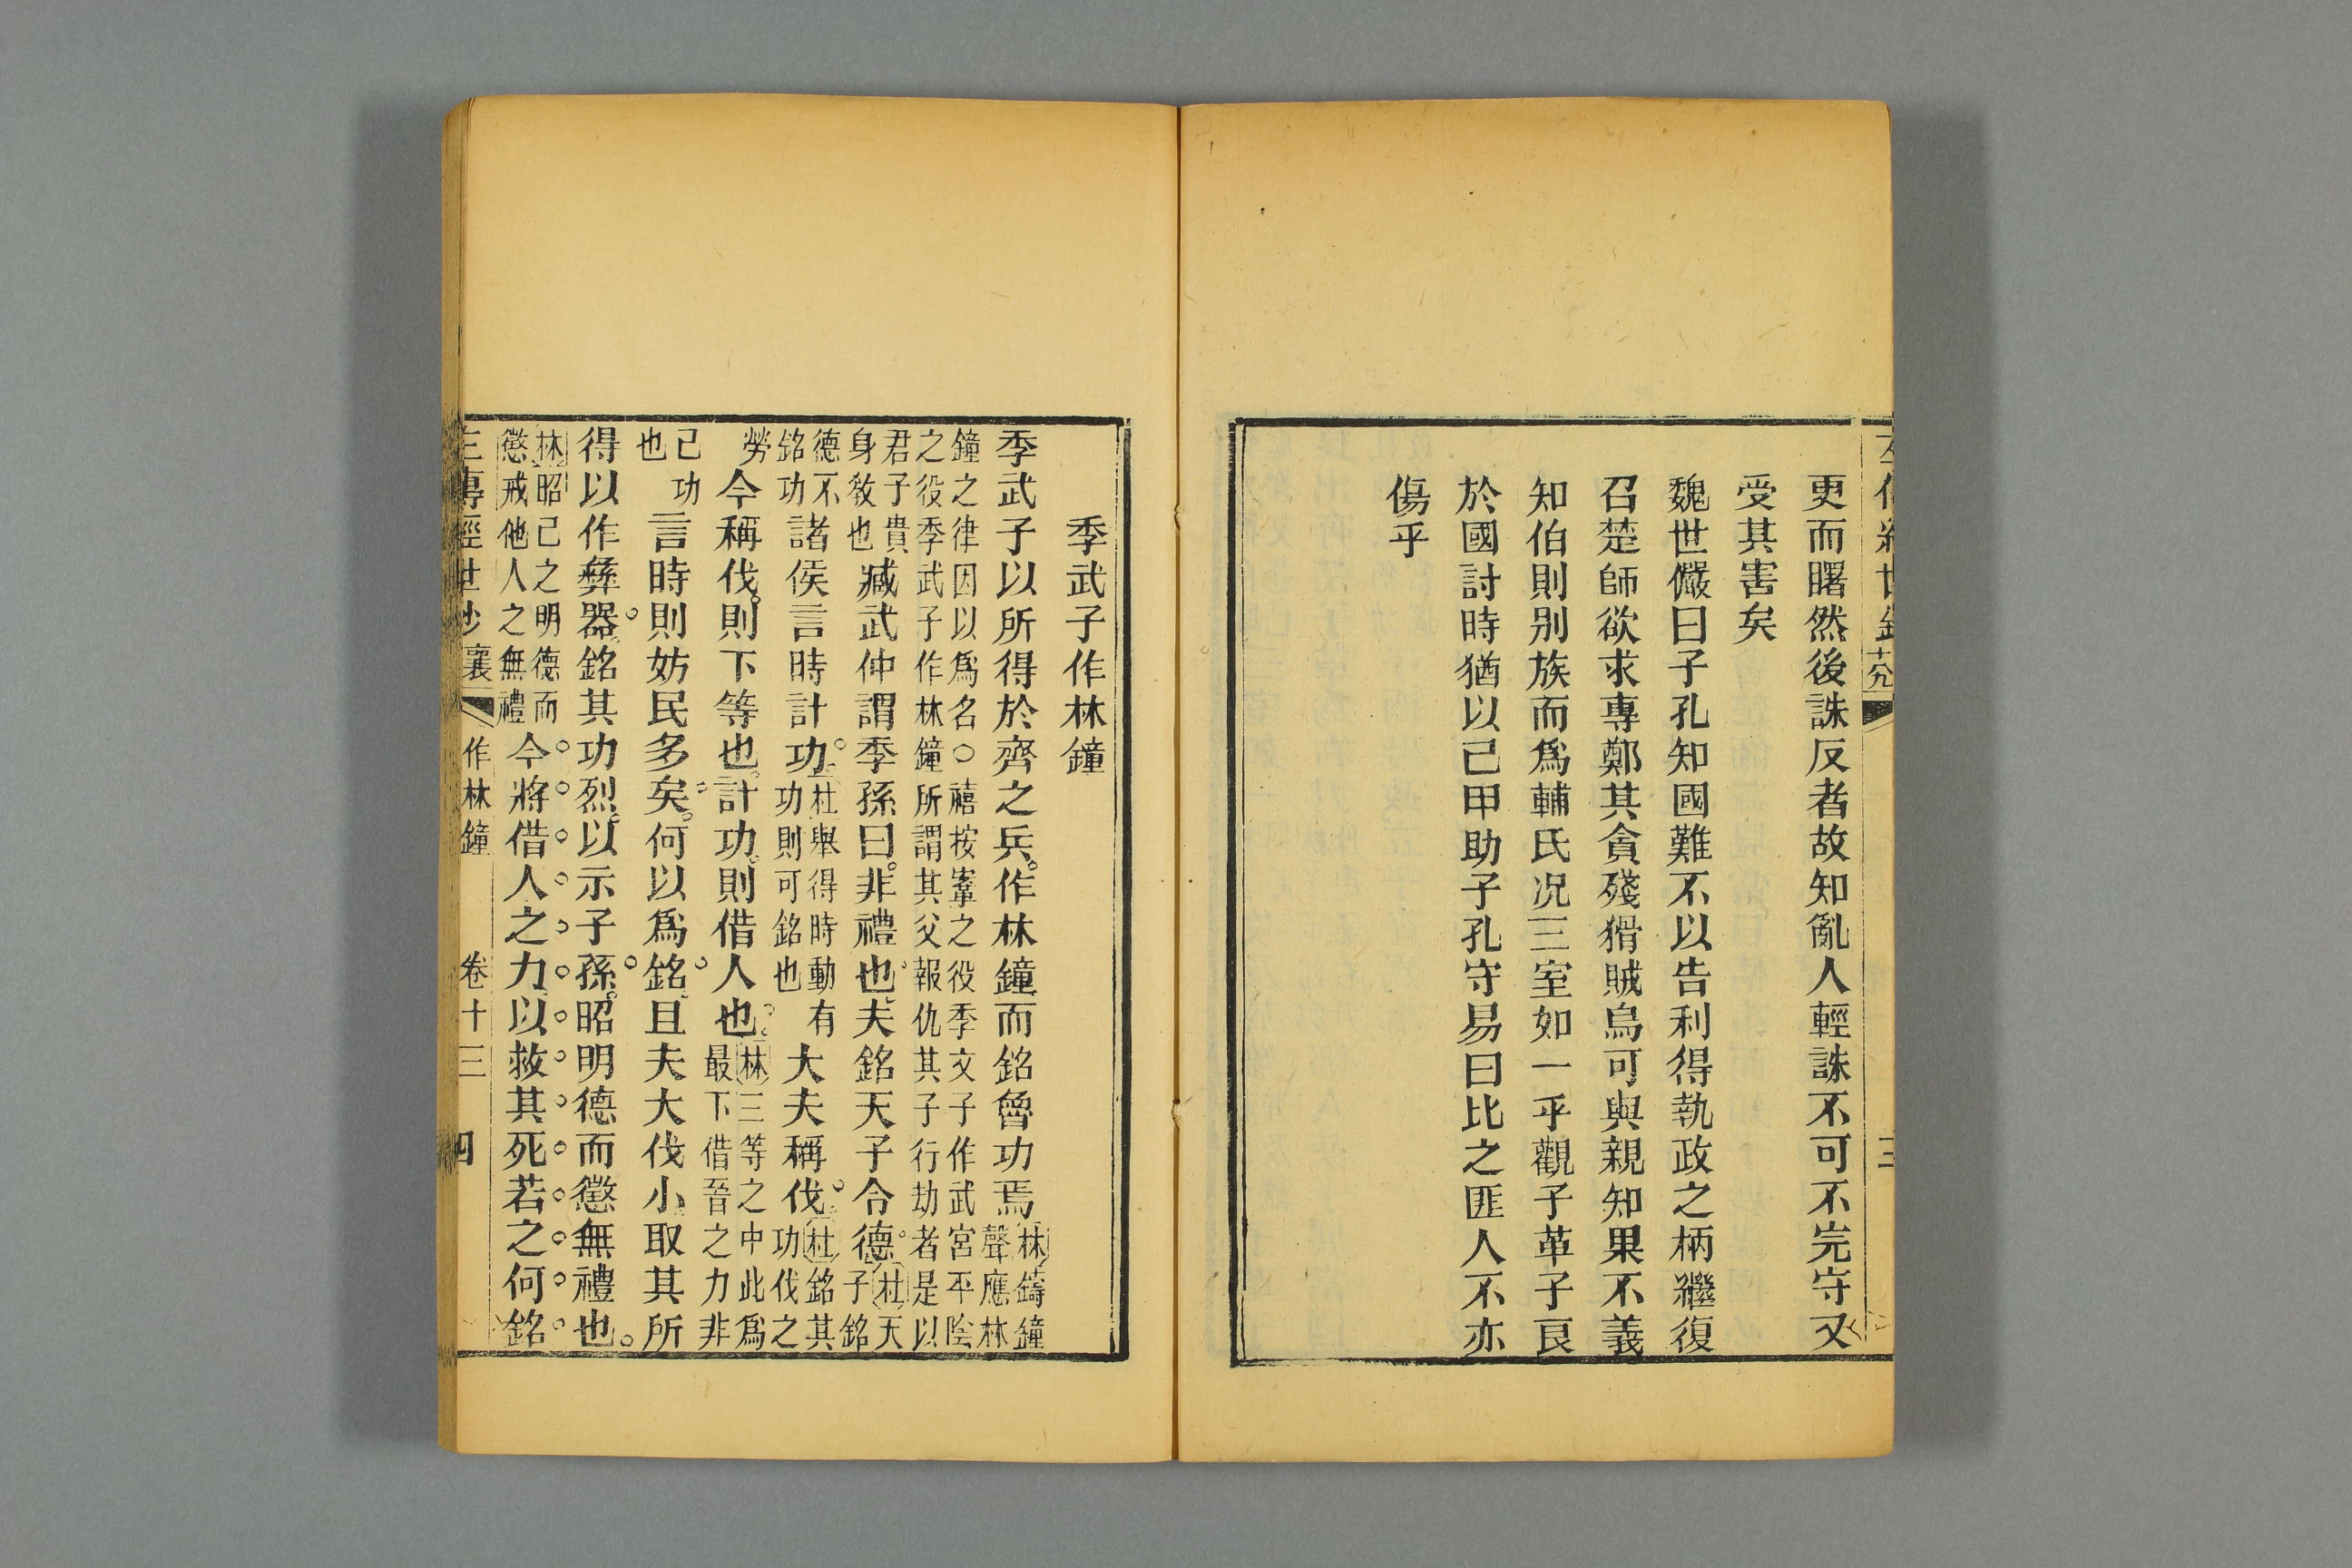 更而曙然後誅反者故知亂人輕誅不可不完守又
受其害矣
魏世儼曰子孔知國難不以告利得執政之柄繼復
召楚師欲求專鄭其貪殘猾賊烏可與親知果不義
知伯則别族而爲輔氏况三室如一乎觀子革子良
於國討時猶以己甲助子孔守易曰比之匪人不亦
傷乎
季武子作林鐘
季武子以所得於齊之兵作林鐘而銘魯功焉林鑄鐘聲應林
鐘之律因以爲名○禧按鞌之役季文子作武宮平陰
之役季武子作林鐘所謂其父報仇其子行劫者是以
君子貴身敎也臧武仲謂季孫曰非禮也夫銘天子令德杜天子銘
德不銘功諸侯言時計功杜舉得時動有功則可銘也大夫稱伐杜銘其功伐之
勞今稱伐則下等也計功則借人也林三等之中此爲最下借晉之力非
己功也言時則妨民多矣何以爲銘且夫大伐小取其所
得以作彝器銘其功烈以示子孫昭明德而懲無禮也
林昭己之明德而懲戒他人之無禮今將借人之力以救其死若之何銘
傳經世鈔 襄 作林鐘 卷十三 四